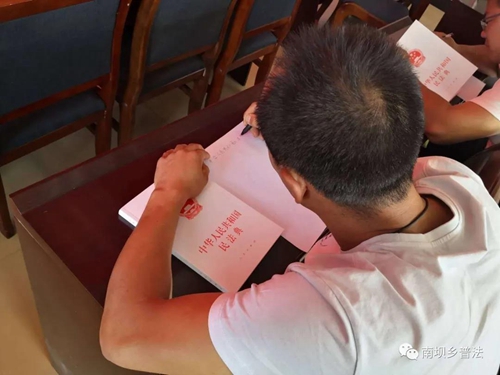 中华人民共和国
民法典
中华人民共和国
民法典
南坝乡普法